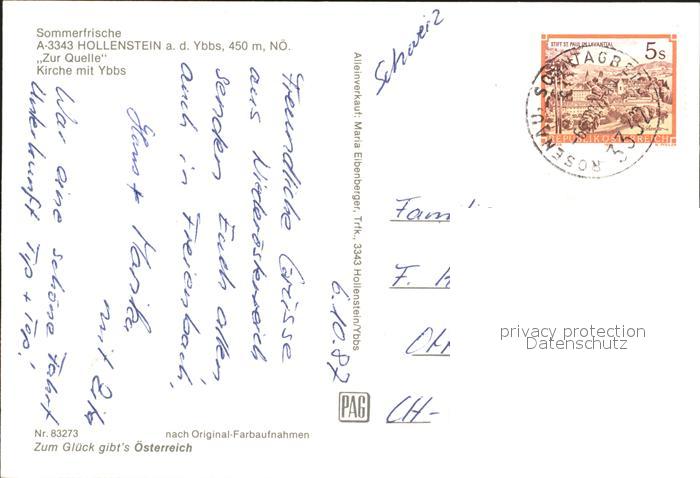 Sommerfrische
A-3343 HOLLENSTEIN a. d. Ybbs, 450 m, NÖ.
„Zur Quelle"
Kirche mit Ybbs
Schweiz
STIFT ST. PAUL IM LAVANTTAL
5 S
REPUBLIK ÖSTERREICH
ROSENAU, SONNTAGBERG
3332
Alleinverkauf: Maria Elbenberger, Trfk., 3343 Hollenstein/Ybbs
6.10.87
Freundliche Grüsse
aus Niederösterreich
senden Euch allen
auch in Freienbach,
Hans + Marika
mit
War eine schöne Fahrt
Unterkunft Tip + Top!
Fam
F.
CH-
privacy protection
Datenschutz
PAG
Nr. 83273
nach Original-Farbaufnahmen
Zum Glück gibt's Österreich